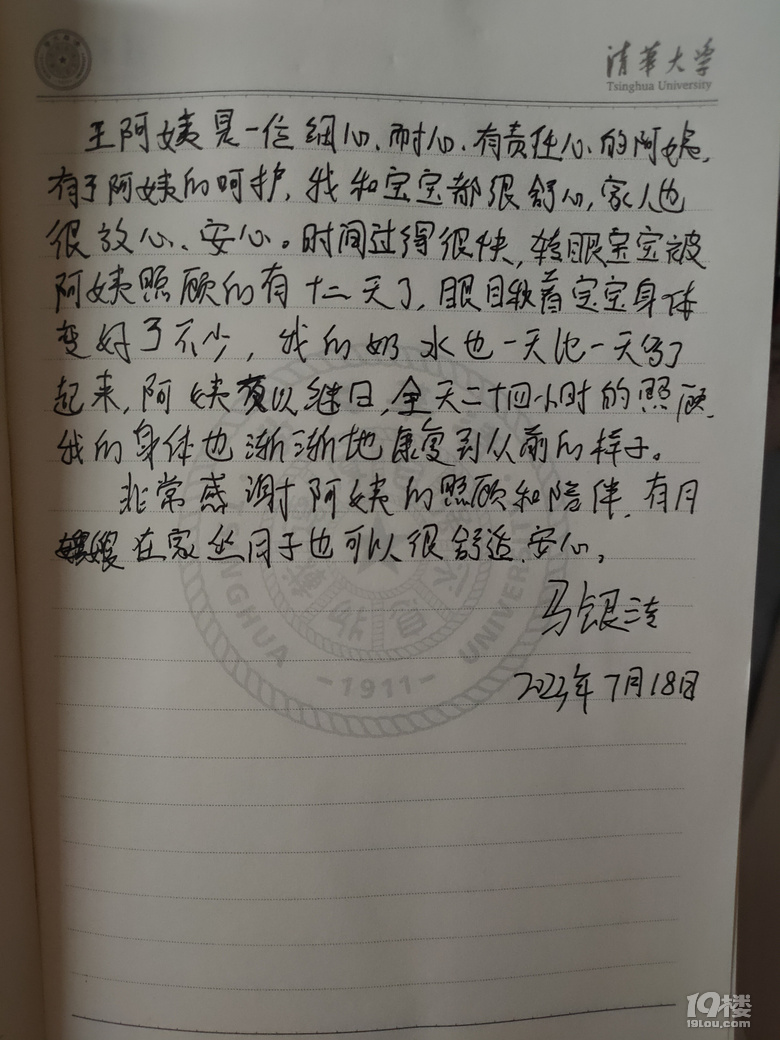 清华大学
Tsinghua University
王阿姨是一位细心、耐心、有责任心的阿姨,
有了阿姨的呵护,我和宝宝都很舒心,家人也
很放心、安心。时间过得很快,转眼宝宝被
阿姨照顾的有十二天了,眼目软着宝宝身体
变好了不少,我的奶水也一天比一天多了
起来,阿姨夜以继日,全天二十四小时的照顾,
我的身体也渐渐地康复到从前的样子。
非常感谢阿姨的照顾和陪伴,有月
嫂在家坐月子也可以很舒适、安心。
马银
2023年7月18日
TSINGHUA UNIVERSITY
-1911-
19楼
19lou.com